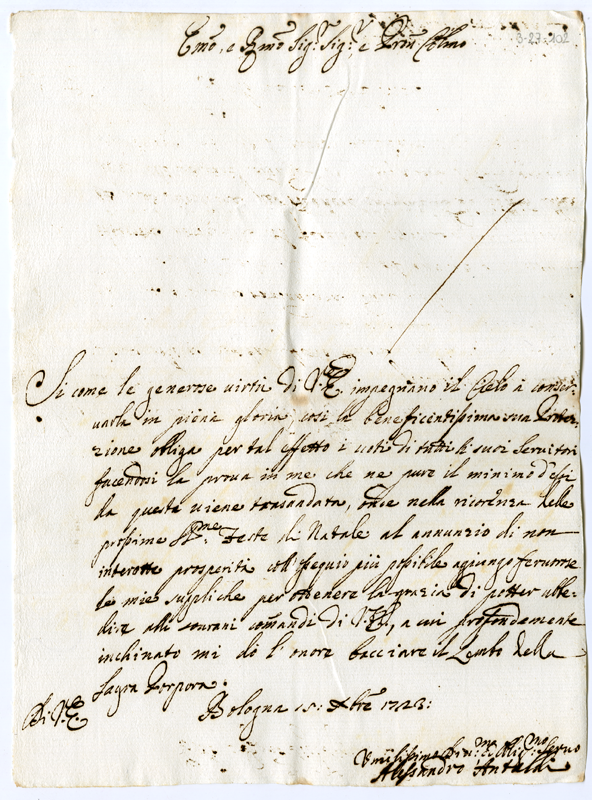 3-27-102
Emo, e Rmo Sig.r Sig.r e Prñ Colmo
Si come le generose virtù di V.E. impegnano il Cielo à conser-
varla in piena gloria, così la beneficentissima sua Prote-
zione obliga per tal effetto i voti di tutti li suoi servitori
facendosi la prova in me che ne pure il minimo d'essi
da questa viene transandata, onde nella ricorenza delle
prossime SS.me Feste di Natale al annunzio di non
interotte prosperità coll'ossequio più possibile agiungo fervorose
le mie supliche per ottenere la grazia di potter ubbe-
dire alli sourani comandi di V.E., a cui profondamente
inchinato mi dò l'onore bacciare il Lembo della
Sagra Porpora.
Di V.E.
Bologna 15: Xbre 1723:
Umilissimo Di.mo Obli.mo Servo
Alessandro Antaldi